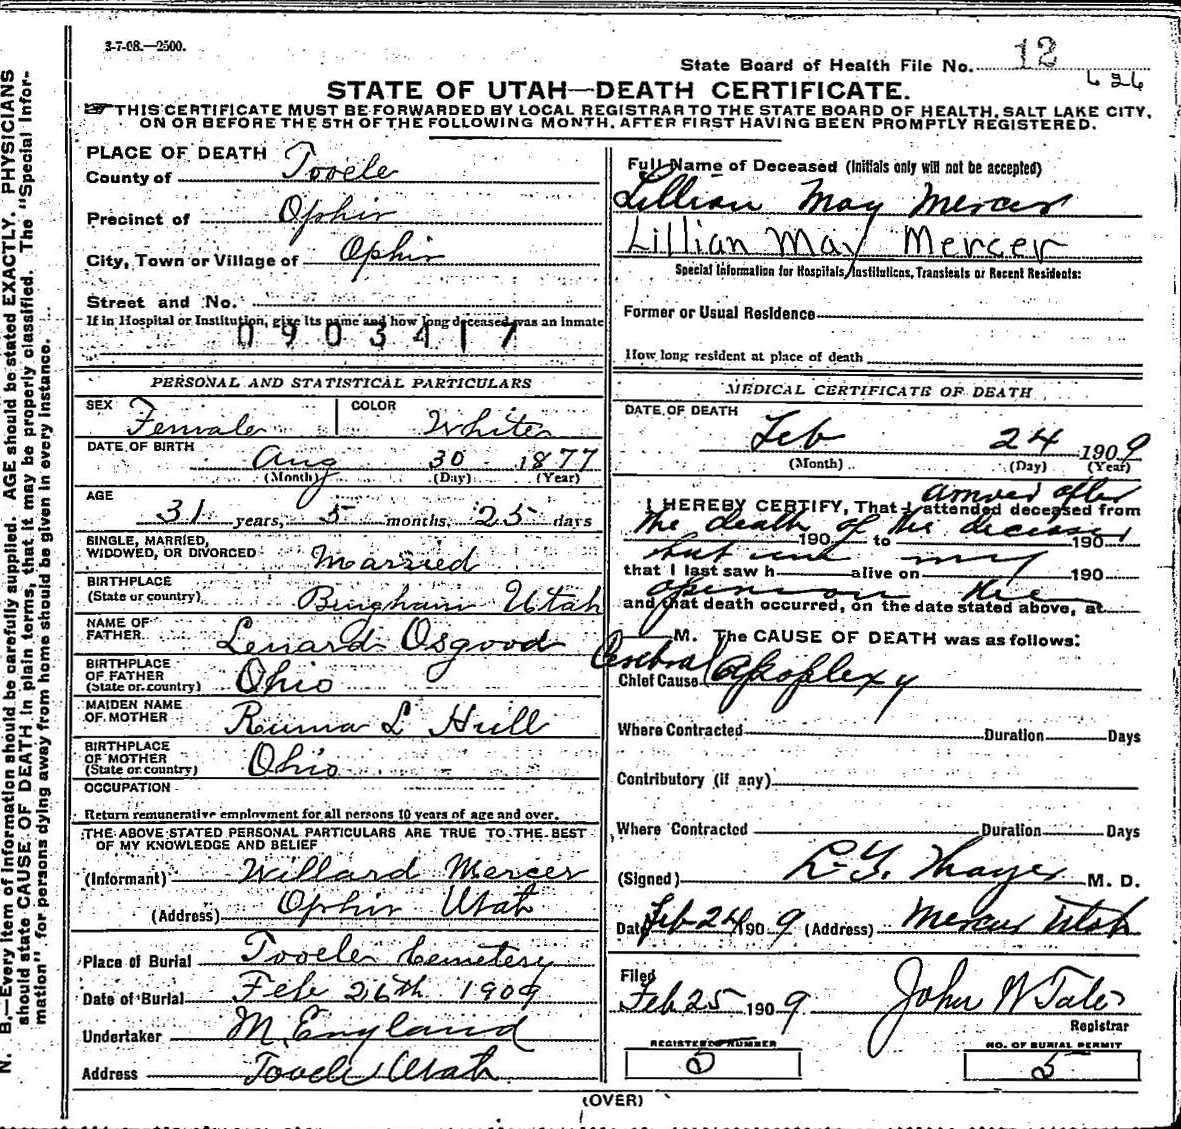 3-7-08.—2500.
State Board of Health File No. 12
626
STATE OF UTAH—DEATH CERTIFICATE.
THIS CERTIFICATE MUST BE FORWARDED BY LOCAL REGISTRAR TO THE STATE BOARD OF HEALTH, SALT LAKE CITY,
ON OR BEFORE THE 5TH OF THE FOLLOWING MONTH, AFTER FIRST HAVING BEEN PROMPTLY REGISTERED.
PLACE OF DEATH
County of Tooele
Precinct of Ophir
City, Town or Village of Ophir
Street and No.
If in Hospital or Institution, give its name and how long deceased was an inmate
0903417
PERSONAL AND STATISTICAL PARTICULARS
SEX Female COLOR White
DATE OF BIRTH Aug 30 1877
(Month) (Day) (Year)
AGE
31 years, 5 months, 25 days
SINGLE, MARRIED,
WIDOWED, OR DIVORCED Married
BIRTHPLACE
(State or country) Bingham Utah
NAME OF
FATHER Lenard Osgood
BIRTHPLACE
OF FATHER
(State or country) Ohio
MAIDEN NAME
OF MOTHER Ruma L Hull
BIRTHPLACE
OF MOTHER
(State or country) Ohio
OCCUPATION
Return remunerative employment for all persons 10 years of age and over.
THE ABOVE STATED PERSONAL PARTICULARS ARE TRUE TO THE BEST
OF MY KNOWLEDGE AND BELIEF
(Informant) Willard Mercer
(Address) Ophir Utah
Place of Burial Tooele Cemetery
Date of Burial Feb 26th 1909
Undertaker M. England
Address Tooele Utah
Full Name of Deceased (Initials only will not be accepted)
Lillian May Mercer
Lillian May Mercer
Special Information for Hospitals, Institutions, Transients or Recent Residents:
Former or Usual Residence
How long resident at place of death
MEDICAL CERTIFICATE OF DEATH
DATE OF DEATH
Feb 24 1909
(Month) (Day) (Year)
arrived after
I HEREBY CERTIFY, That I attended deceased from
the death of the deceased
190 to 190
but in my
that I last saw h alive on 190
opinion the
and that death occurred, on the date stated above, at
M. The CAUSE OF DEATH was as follows:
Chief Cause Cerebral Apoplexy
Where Contracted Duration Days
Contributory (if any)
Where Contracted Duration Days
(Signed) M. D.
Date Feb 24 1909 (Address) Mercur Utah
Filed
Feb 25 1909 John W Tate
Registrar
REGISTERED NUMBER
5
NO. OF BURIAL PERMIT
5
(OVER)
N. B.—Every item of information should be carefully supplied. AGE should be stated EXACTLY. PHYSICIANS
should state CAUSE OF DEATH in plain terms, that it may be properly classified. The "Special Infor-
mation" for persons dying away from home should be given in every instance.